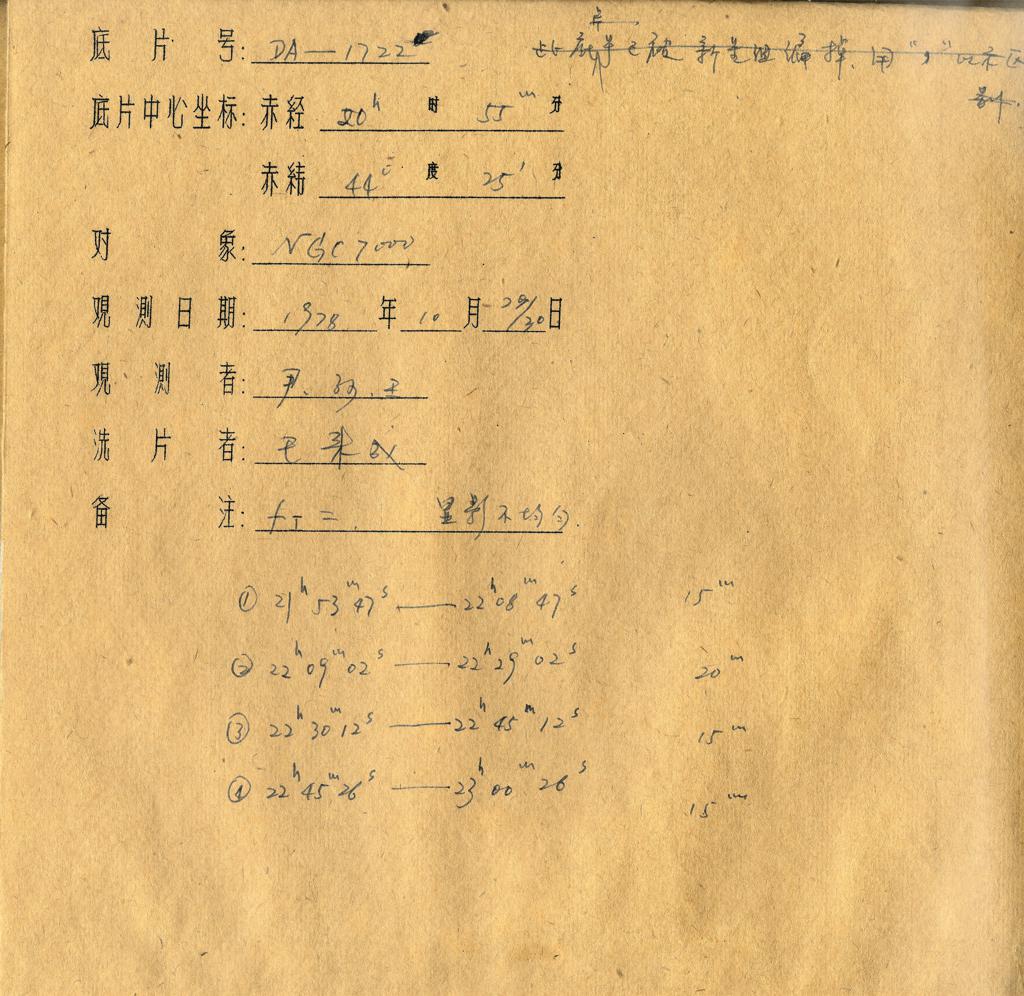 底片号: DA—1722
此底片号已被新星组编掉、用","以示区
别.
底片中心坐标: 赤经 20h 时 55m 分
赤纬 44° 度 25′ 分
对象: NGC7000
观测日期: 1978 年 10 月 29/30 日
观测者: 尹、孙、王
洗片者: 王
备注: 星影不均匀.
① 21h53m47s —— 22h08m47s 15m
② 22h09m02s —— 22h29m02s 20m
③ 22h30m12s —— 22h45m12s 15m
④ 22h45m26s —— 23h00m26s 15m